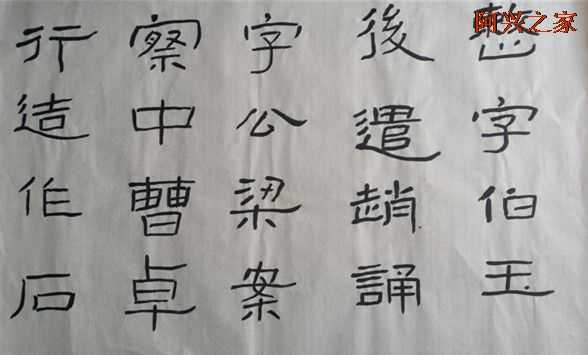 阿兴之家
整字伯玉
後遣趙誦
字公梁案
察中曹卓
行造作石